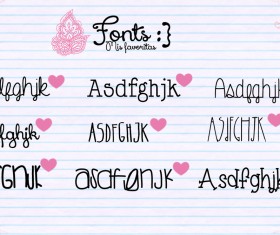 Fonts :}
O' lis favoritas
dfghjk Asdfghjk Asdfghjk
sdfghjk ASDFGHJK ASDFGHJK
FGHJK asdfGhJK Asdfghjk